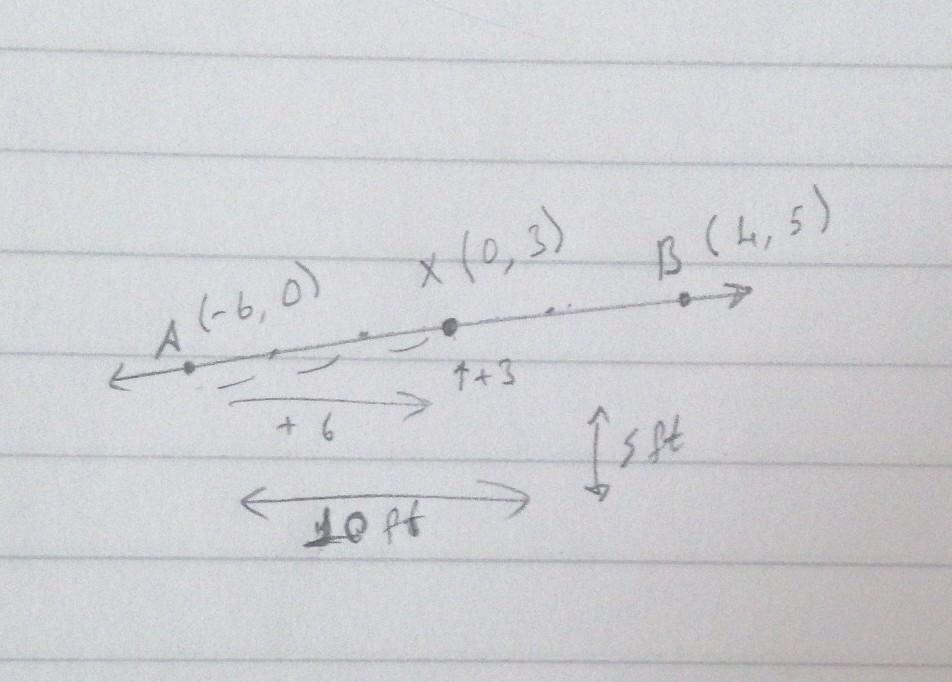 A (-6, 0)
X (0, 3)
B (4, 5)
+ 6
↑+3
5 ft
10 ft